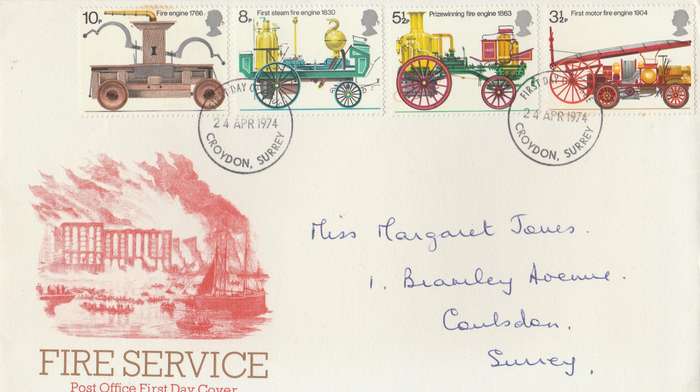 10P Fire engine 1766
8P First steam fire engine 1830
5½P Prizewinning fire engine 1863
3½P First motor fire engine 1904
FIRST DAY
24 APR 1974
CROYDON, SURREY
FIRST DAY
24 APR 1974
CROYDON, SURREY
Miss Margaret Jones.
1, Bramley Avenue.
Coulsdon,
Surrey.
FIRE SERVICE
Post Office First Day Cover